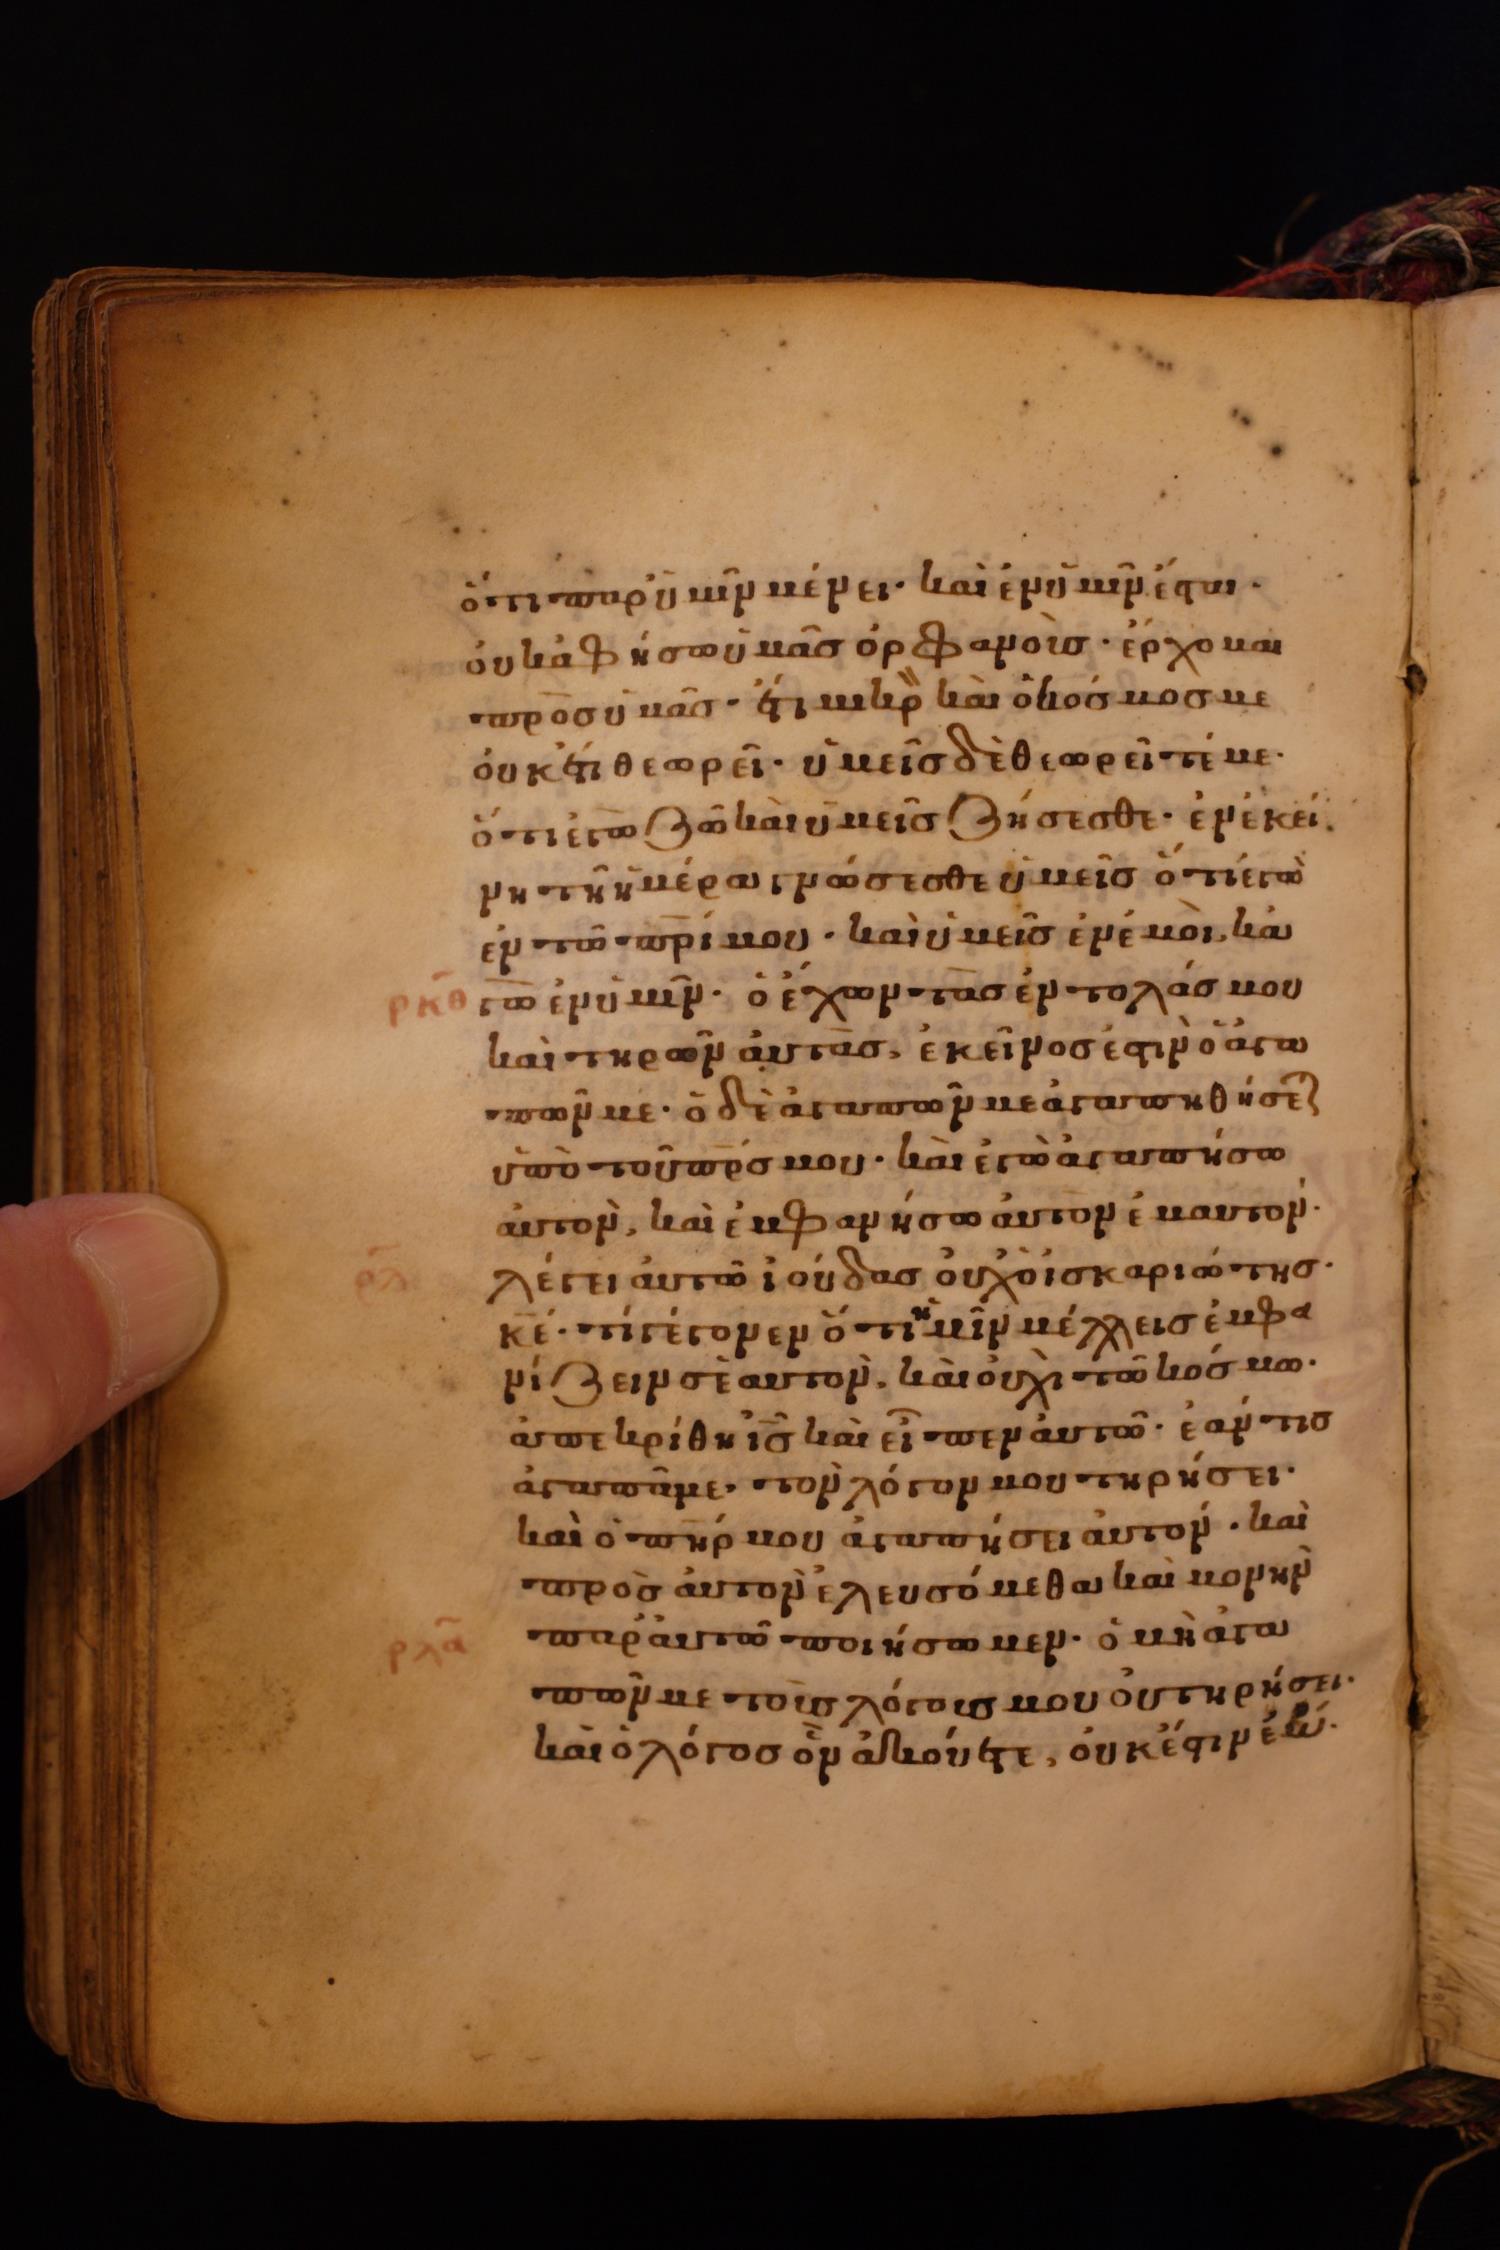 ὅτι παρ ὑμῖν μένει· καὶ ἐν ὑμῖν ἔσται·
οὐκ ἀφήσω ὑμᾶς ὀρφανοὺς· ἔρχομαι
πρὸς ὑμᾶς· ἔτι μικρὸν καὶ ὁ κόσμος με
οὐκ ἔτι θεωρεῖ· ὑμεῖς δὲ θεωρεῖτέ με·
ὅτι ἐγὼ ζῶ καὶ ὑμεῖς ζήσεσθε· ἐν ἐκεί
νη τῆ ἡμέρα γνώσεσθε ὑμεῖς ὅτι ἐγὼ
ἐν τῶ πρί μου· καὶ ὑμεῖς ἐν ἐμοὶ, κἀ
ρκθ γὼ ἐν ὑμῖν· ὁ ἔχων τὰς ἐντολάς μου
καὶ τηρῶν αὐτὰς, ἐκεῖνος ἐστιν ὁ ἀγα
πῶν με· ὁ δὲ ἀγαπῶν με ἀγαπηθήσεται
ὑπὸ τοῦ πρς μου· καὶ ἐγὼ ἀγαπήσω
αὐτὸν, καὶ ἐμφανήσω αὐτὸν ἐμαυτόν·
ρλ λέγει αὐτῶ ἰούδας οὐχ ὁ ἰσκαριώτης·
κε· τί γέγονεν ὅτι ἡμῖν μέλλεις ἐμφα
νίζειν σὲαυτὸν, καὶ οὐχὶ τῶ κόσμω·
ἀπεκρίθη ις καὶ εἶπεν αὐτῶ· ἐάν τις
ἀγαπᾶ με· τὸν λόγον μου τηρήσει·
καὶ ὁ πηρ μου ἀγαπήσει αὐτόν· καὶ
πρὸς αὐτὸν ἐλευσόμεθα καὶ μονὴν
ρλα παρ αὐτῶ ποιήσωμεν· ὁ μὴ ἀγα
πῶν με τοὺς λόγους μου οὐ τηρήσει·
καὶ ὁ λόγος ὃν ἀκούετε, οὐκ ἔστιν ἐμός·